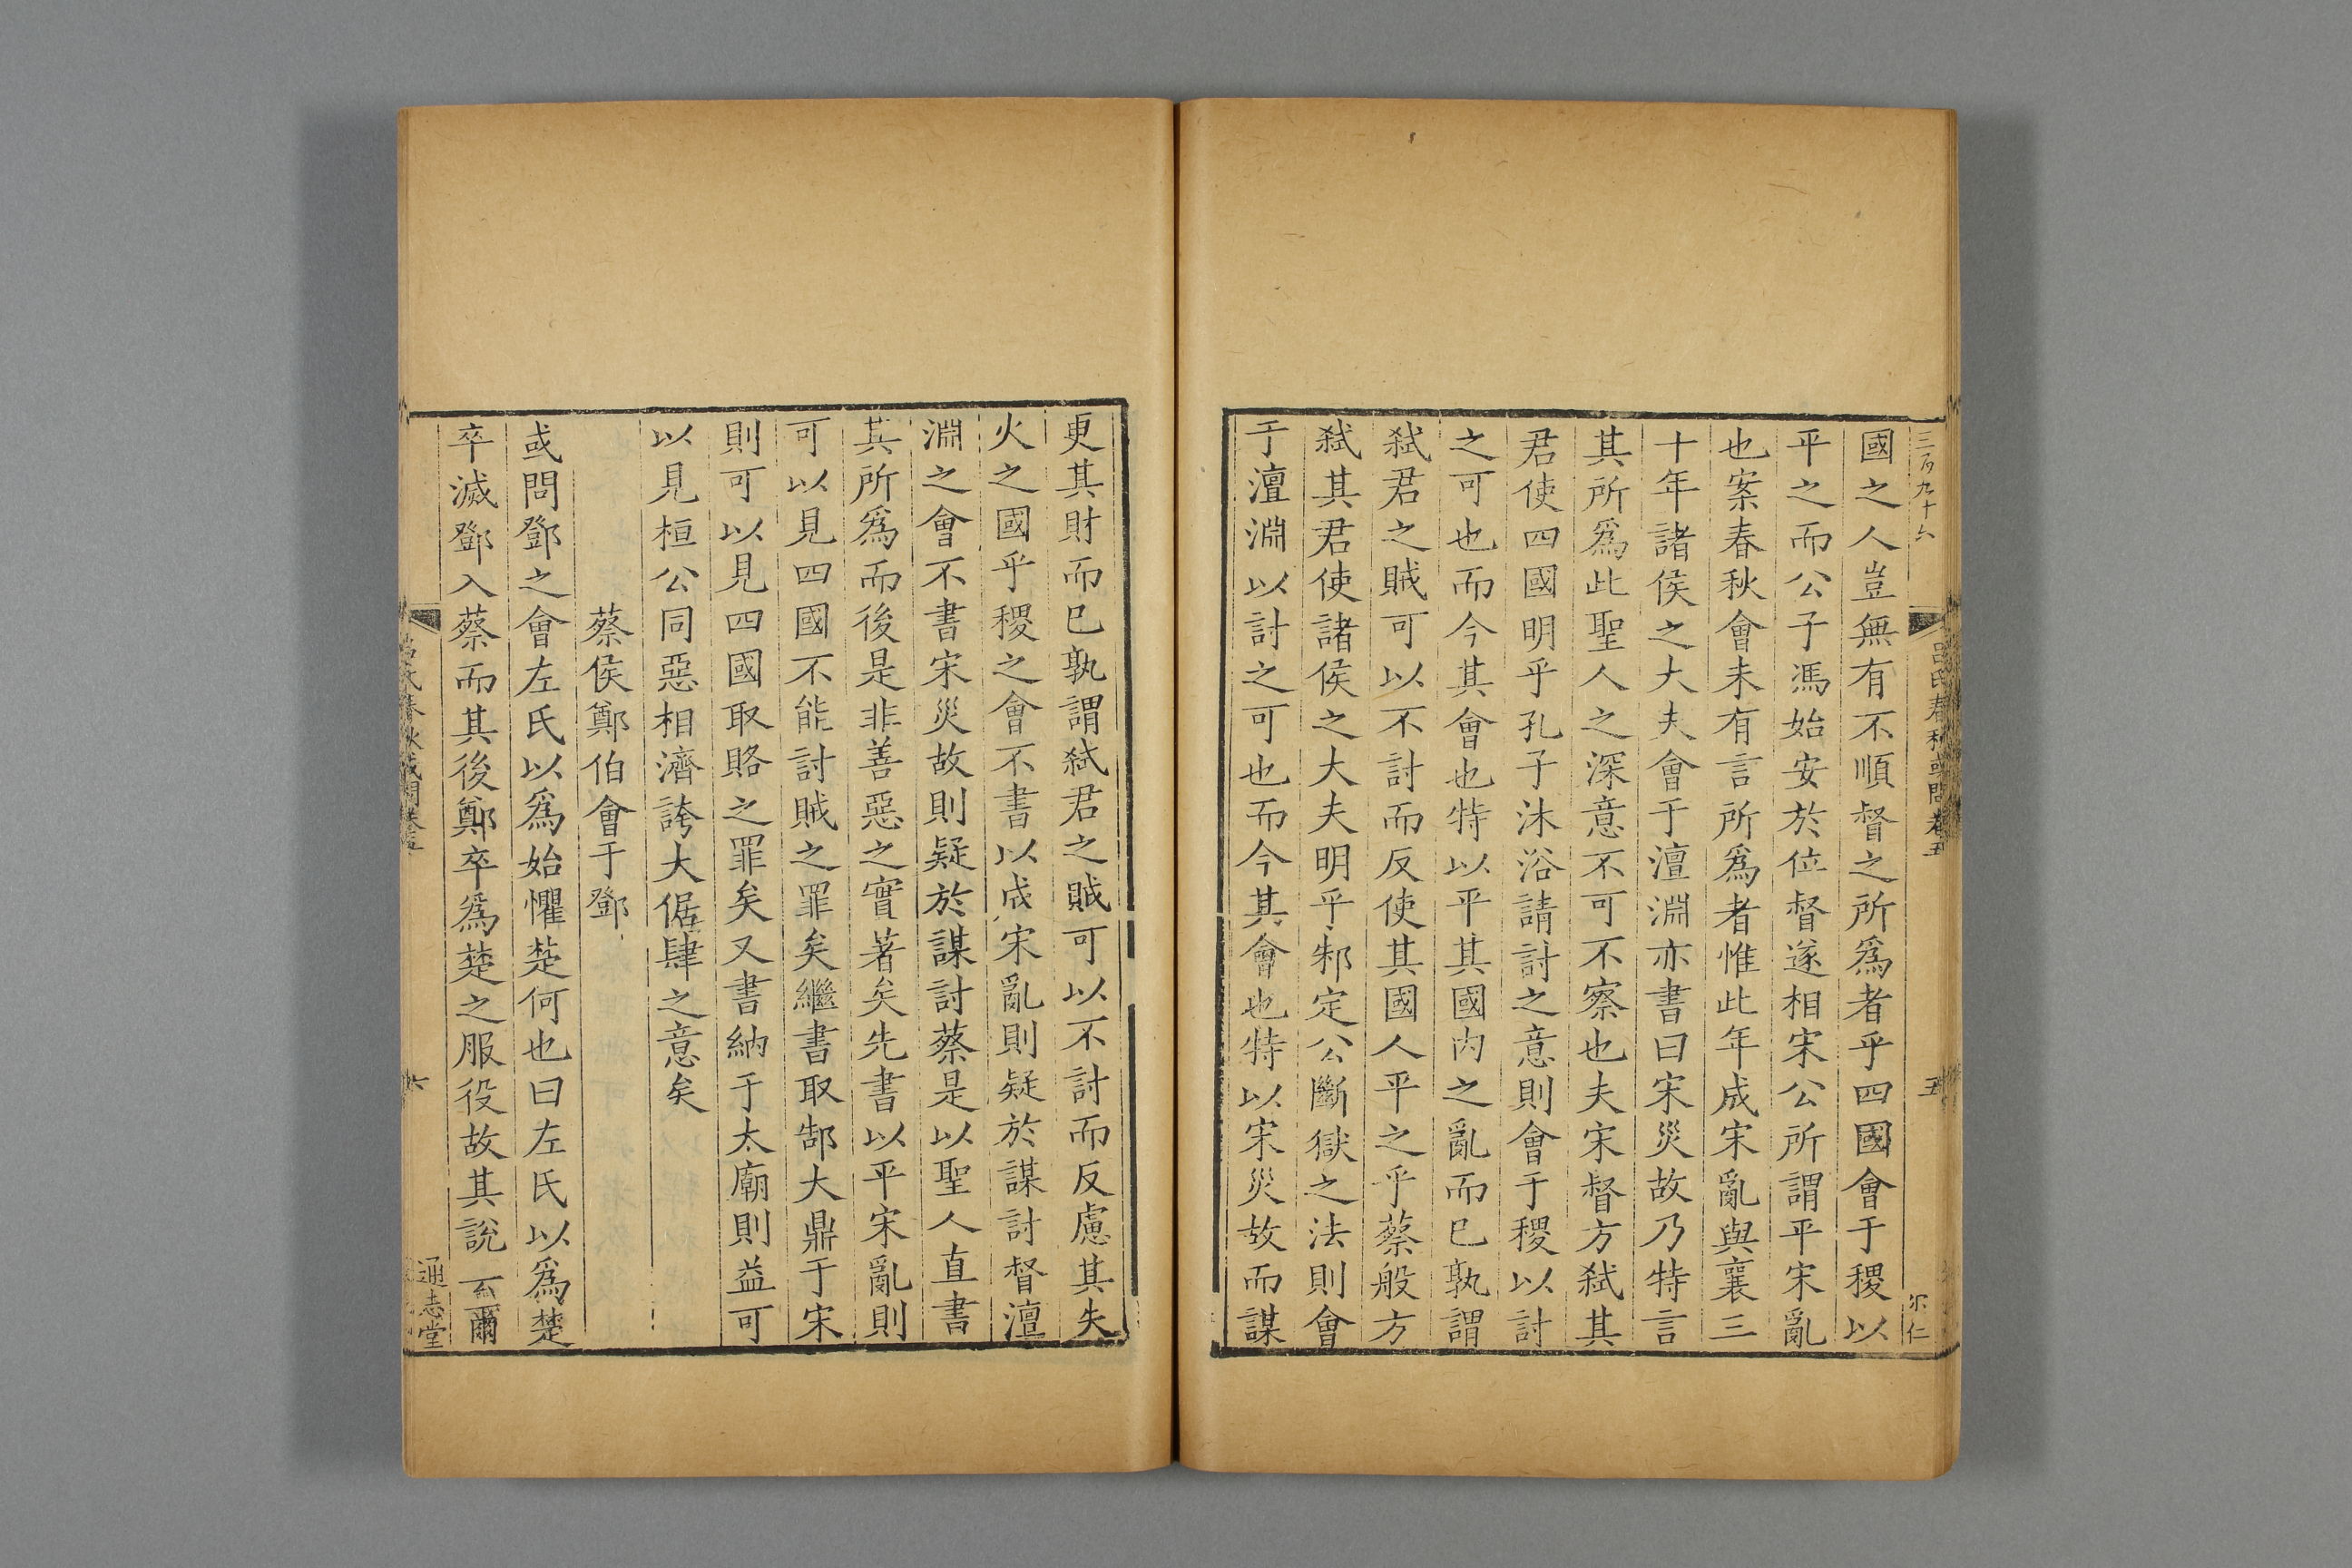 三百九十六
呂氏春秋或問卷五
五
尔仁
國之人豈無有不順督之所爲者乎四國會于稷以
平之而公子馮始安於位督遂相宋公所謂平宋亂
也案春秋會未有言所爲者惟此年成宋亂與襄三
十年諸侯之大夫會于澶淵亦書曰宋災故乃特言
其所爲此聖人之深意不可不察也夫宋督方弑其
君使四國明乎孔子沐浴請討之意則會于稷以討
之可也而今其會也特以平其國内之亂而已孰謂
弑君之賊可以不討而反使其國人平之乎蔡般方
弑其君使諸侯之大夫明乎邾定公斷獄之法則會
于澶淵以討之可也而今其會也特以宋災故而謀
更其財而已孰謂弑君之賊可以不討而反慮其失
火之國乎稷之會不書以成宋亂則疑於謀討督澶
淵之會不書宋災故則疑於謀討蔡是以聖人直書
其所爲而後是非善惡之實著矣先書以平宋亂則
可以見四國不能討賊之罪矣繼書取郜大鼎于宋
則可以見四國取賂之罪矣又書納于太廟則益可
以見桓公同惡相濟誇大倨肆之意矣
蔡侯鄭伯會于鄧
或問鄧之會左氏以爲始懼楚何也曰左氏以爲楚
卒滅鄧入蔡而其後鄭卒爲楚之服役故其說云爾
呂氏春秋或問卷五
六
通志堂